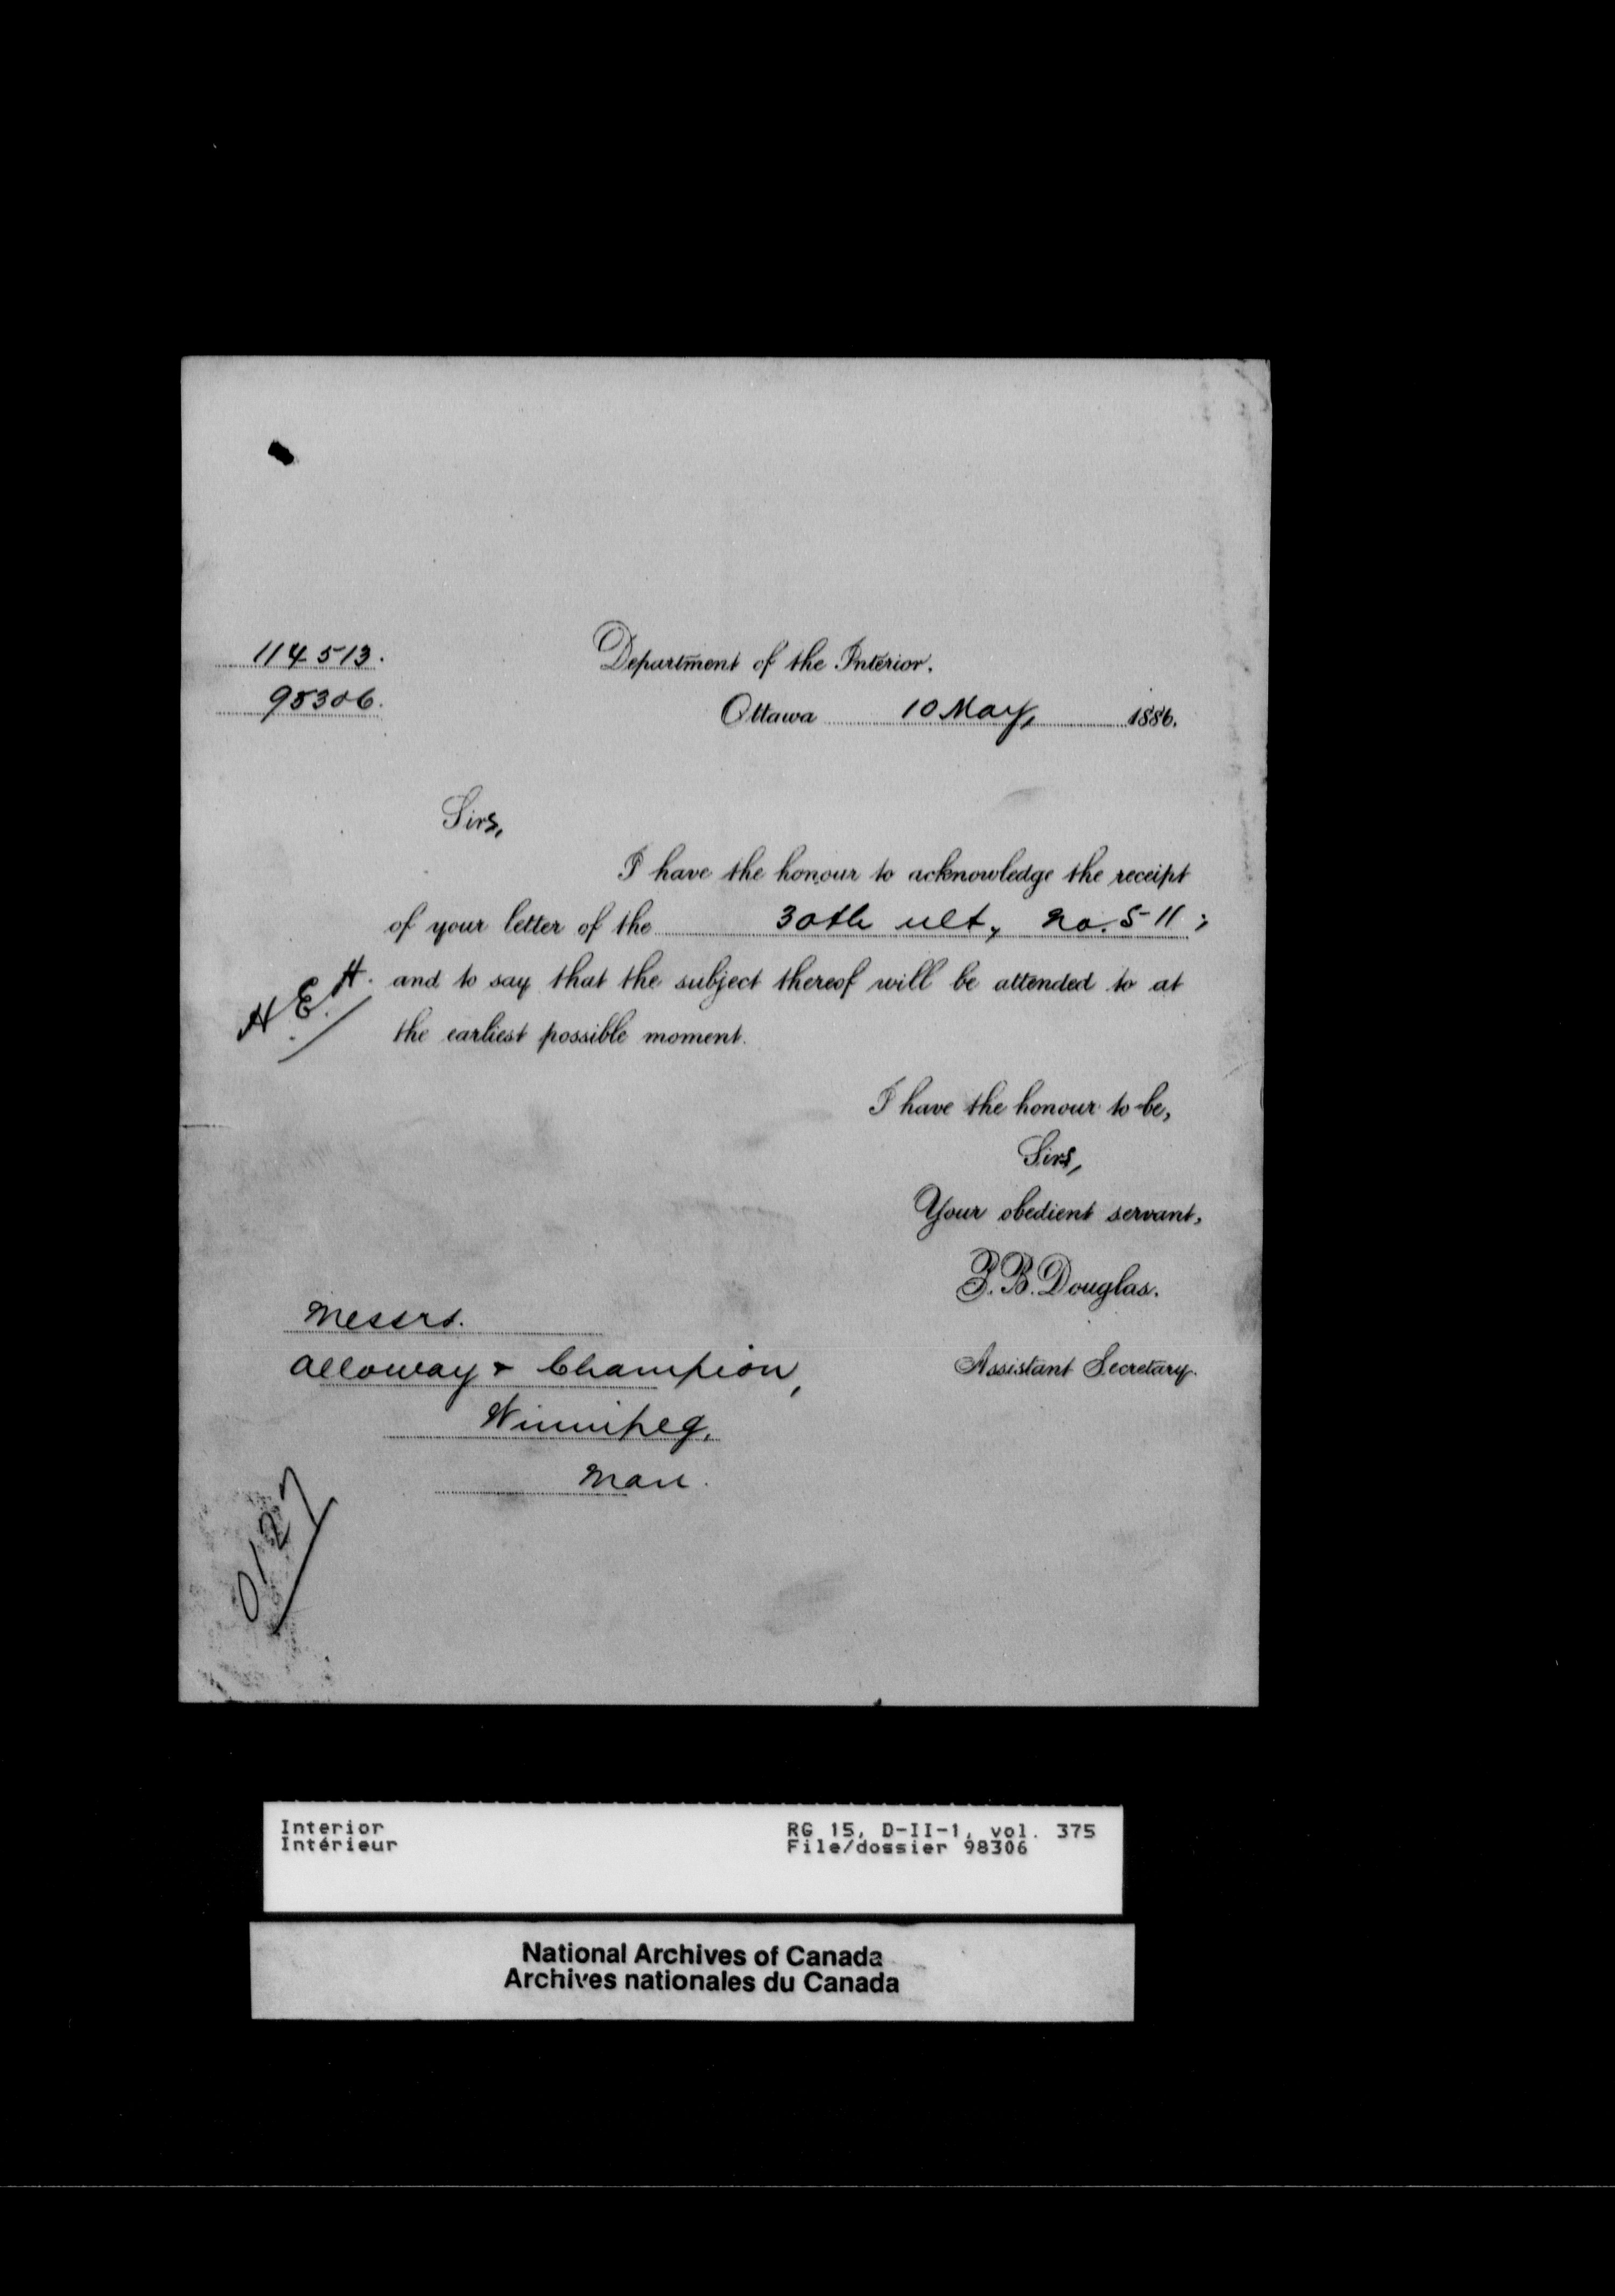 114513.
98306.
Department of the Interior.
Ottawa 10 May, 1886.
Sirs,
I have the honour to acknowledge the receipt
of your letter of the 30th ult, No. 511;
H.E.H. and to say that the subject thereof will be attended to at
the earliest possible moment.
I have the honour to be,
Sirs,
Your obedient servant,
P. B. Douglas.
Assistant Secretary.
Messrs.
Alloway & Champion,
Winnipeg,
Man.
0127
Interior
Intérieur
RG 15, D-II-1, vol. 375
File/dossier 98306
National Archives of Canada
Archives nationales du Canada